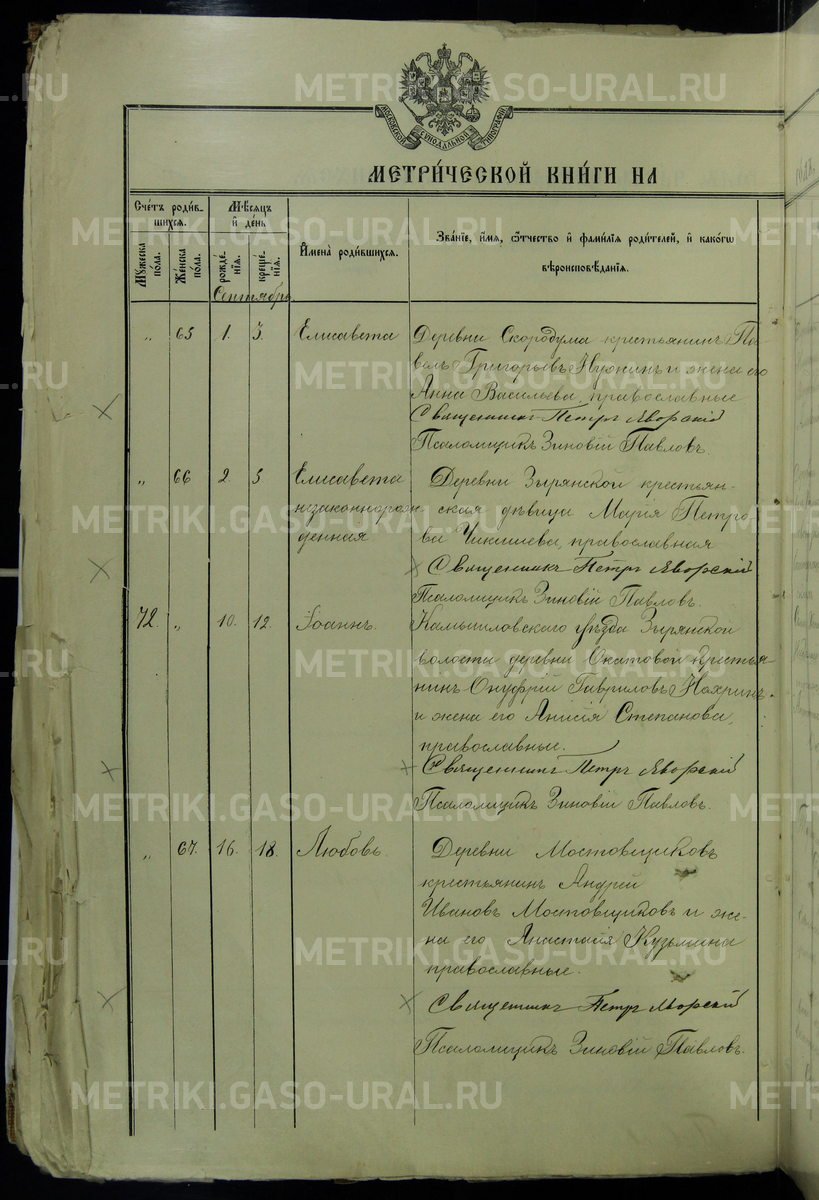 МОСКОВСКОЙ СѴНОДАЛЬНОЙ ТИПОГРАФІИ
МЕТРИ́ЧЕСКОЙ КНИ́ГИ НА
Сче́тъ роди́в-
шихся.
Мꙋ́жеска по́ла.
Же́нска по́ла.
Мѣ́сяцъ
и҆ де́нь
рожде́-нїя.
креще́-нїя.
И҆мена̀ роди́вшихся.
Зва́нїе, и҆́мя, ѻ҆́тчество и҆ фами́лїя роди́телей, и҆ како́гѡ
вѣроисповѣ́данїя.
Сентябрь.
„ 65 1. 3. Елисавета Деревни Скородума крестьянинъ Па
велъ Григорьевъ и жена его
Анна Васильева, православные
Священникъ Петръ Яворскій
Псаломщикъ Зиновій Павловъ.
„ 66 2 5 Елисавета Деревни Зырянской крестьян-
незаконнорож ская дѣвица Марія Петро-
денная ва Чикишева, православная
Священникъ Петръ Яворскій
Псаломщикъ Зиновій Павловъ.
72. „ 10. 12. Іоаннъ. Камышловскаго уѣзда Зырянской
волости деревни Скатовой крестья
нинъ Онуфрій Гавриловъ Нохринъ
и жена его Анисія Степанова,
православные.
Священникъ Петръ Яворскій
Псаломщикъ Зиновій Павловъ.
„ 67. 16. 18. Любовь. Деревни Мостовщиковъ
крестьянинъ Андрей
Ивановъ Мостовщиковъ и же-
на его Анастасія Кузьмина
православные.
Священникъ Петръ Яворскій
Псаломщикъ Зиновій Павловъ.
METRIKI.GASO-URAL.RU